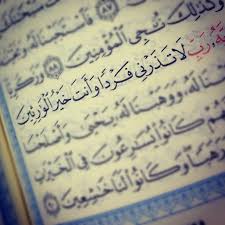 فَٱسْتَجَبْنَا لَهُۥ
وَكَذَٰلِكَ نُـۨجِى ٱلْمُؤْمِنِينَ ٨٨ وَزَكَرِيَّا
رَبِّ لَا تَذَرْنِى فَرْدًا وَأَنتَ خَيْرُ ٱلْوَٰرِثِينَ
لَهُۥ وَوَهَبْنَا لَهُۥ يَحْيَىٰ وَأَصْلَحْنَا
كَانُوا۟ يُسَٰرِعُونَ فِى ٱلْخَيْرَ
وَرَهَبًا وَكَانُوا۟ لَنَا خَٰشِعِينَ ٩٠